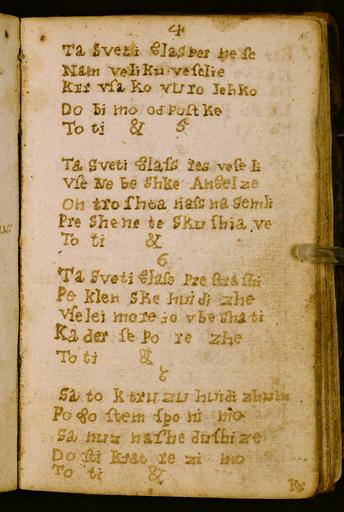 4
Ta Sveti Glas per ne se
Nam veliku veselie
Ker vsa ko vuro lehko
Do bi mo od Post ke
To ti & 5
Ta Sveti Glass res vese li
Vse Ne be Shke Angelze
On tro shta nass na Semli
Pre She ne te Sku shia ve
To ti &
6
Ta Sveti Glass Pre stra shi
Pe klen Ske hui di zhe
Vse lei mo re jo v be sha ti
Ka der se Po re zhe
To ti &
7
Sa to K tru zu hui di
Po go stem spo ni mo
Sa nuz na she dushi ze
Do sti Krat re zi mo
To ti &
Kr